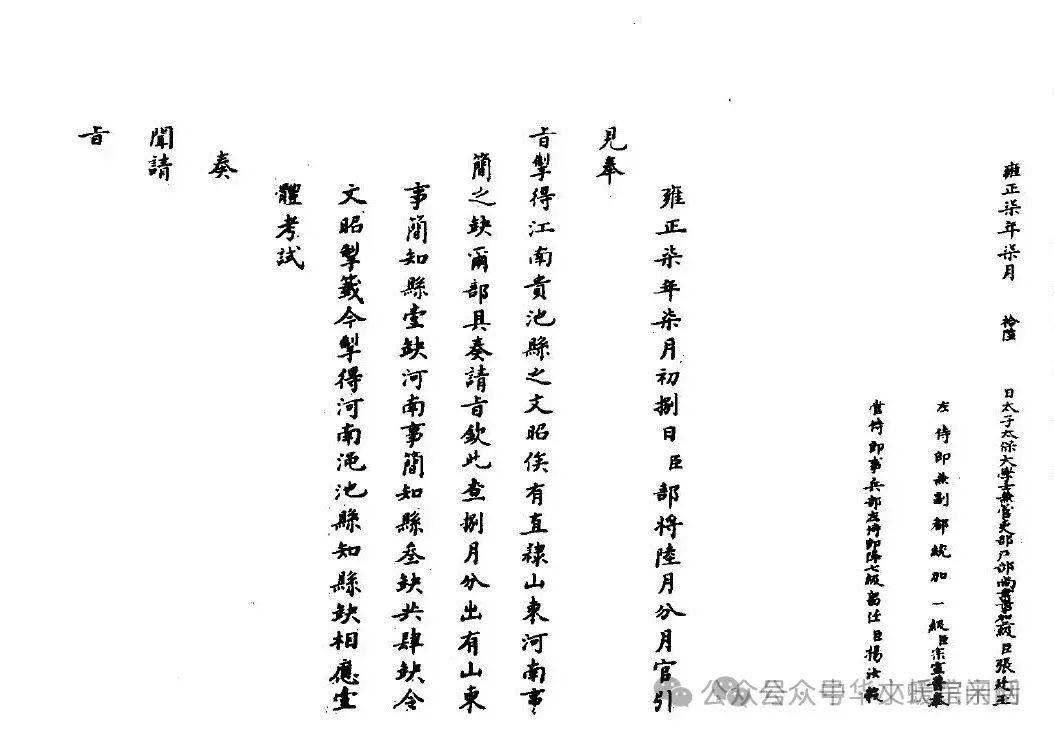 雍正柒年柒月 拾陸 日太子太保大學士兼管吏部戶部尚書事加級臣張廷玉
左侍郎兼副都統加一級臣宗室普泰
侍郎事兵部左侍郎降七級留任臣楊汝穀
雍正柒年柒月初捌日臣部將陸月分月官引
見奉
旨掣得江南貴池縣之文昭俟有直隸山東河南事
簡之缺爾部具奏請旨欽此查捌月分出有山東
事簡知縣壹缺河南事簡知縣叁缺共肆缺令
文昭掣籤今掣得河南澠池縣知縣缺相應壹
體考試
奏
聞請
旨
公众号